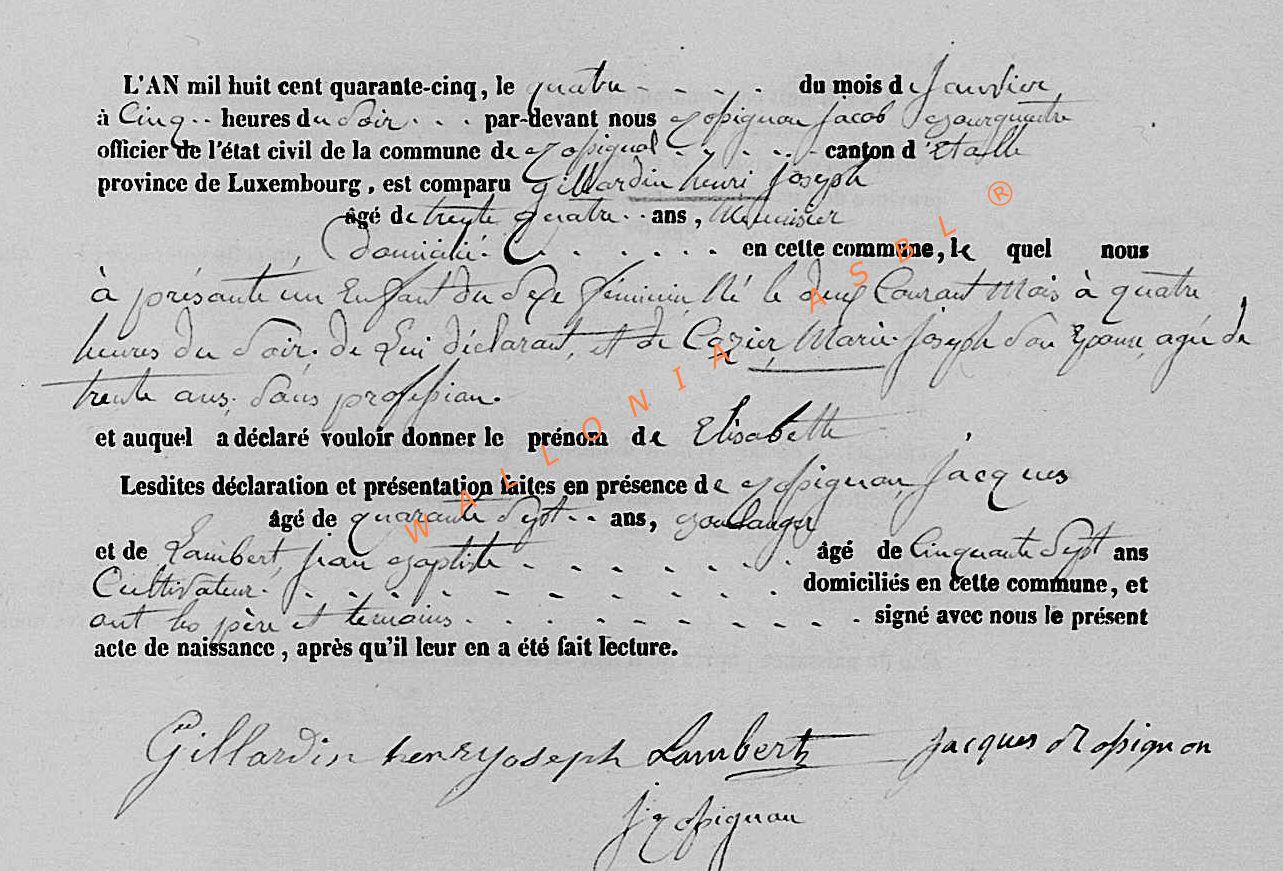 L'AN mil huit cent quarante-cinq, le quatre du mois de Janvier
à Cinq heures du Soir par-devant nous Rossignon Jacob Bourguemetre
officier de l'état civil de la commune de Rossignol canton d'Etalle
province de Luxembourg, est comparu Gillardin henri Joseph
âgé de trente quatre ans, Menuisier
Domicilié en cette commune, le quel nous
à présenté un Enfant du Sexe féminin Né le deux Courant Mois à quatre
heures du Soir. de Lui déclarant, et de Cozier Marie Joseph Son Epouse, agée de
trente ans. Sans profession.
et auquel a déclaré vouloir donner le prénom de Elisabeth
Lesdites déclaration et présentation faites en présence de Rossignon Jacques
âgé de quarante Sept ans, Boulanger
et de Lambert, jean Baptiste âgé de Cinquante Sept ans
Cultivateur. domiciliés en cette commune, et
ont les père et temoins signé avec nous le présent
acte de naissance, après qu'il leur en a été fait lecture.
Gillardin henry Joseph Lambert Jacques Rossignon
J Rossignon
WALLONIA ASBL ®